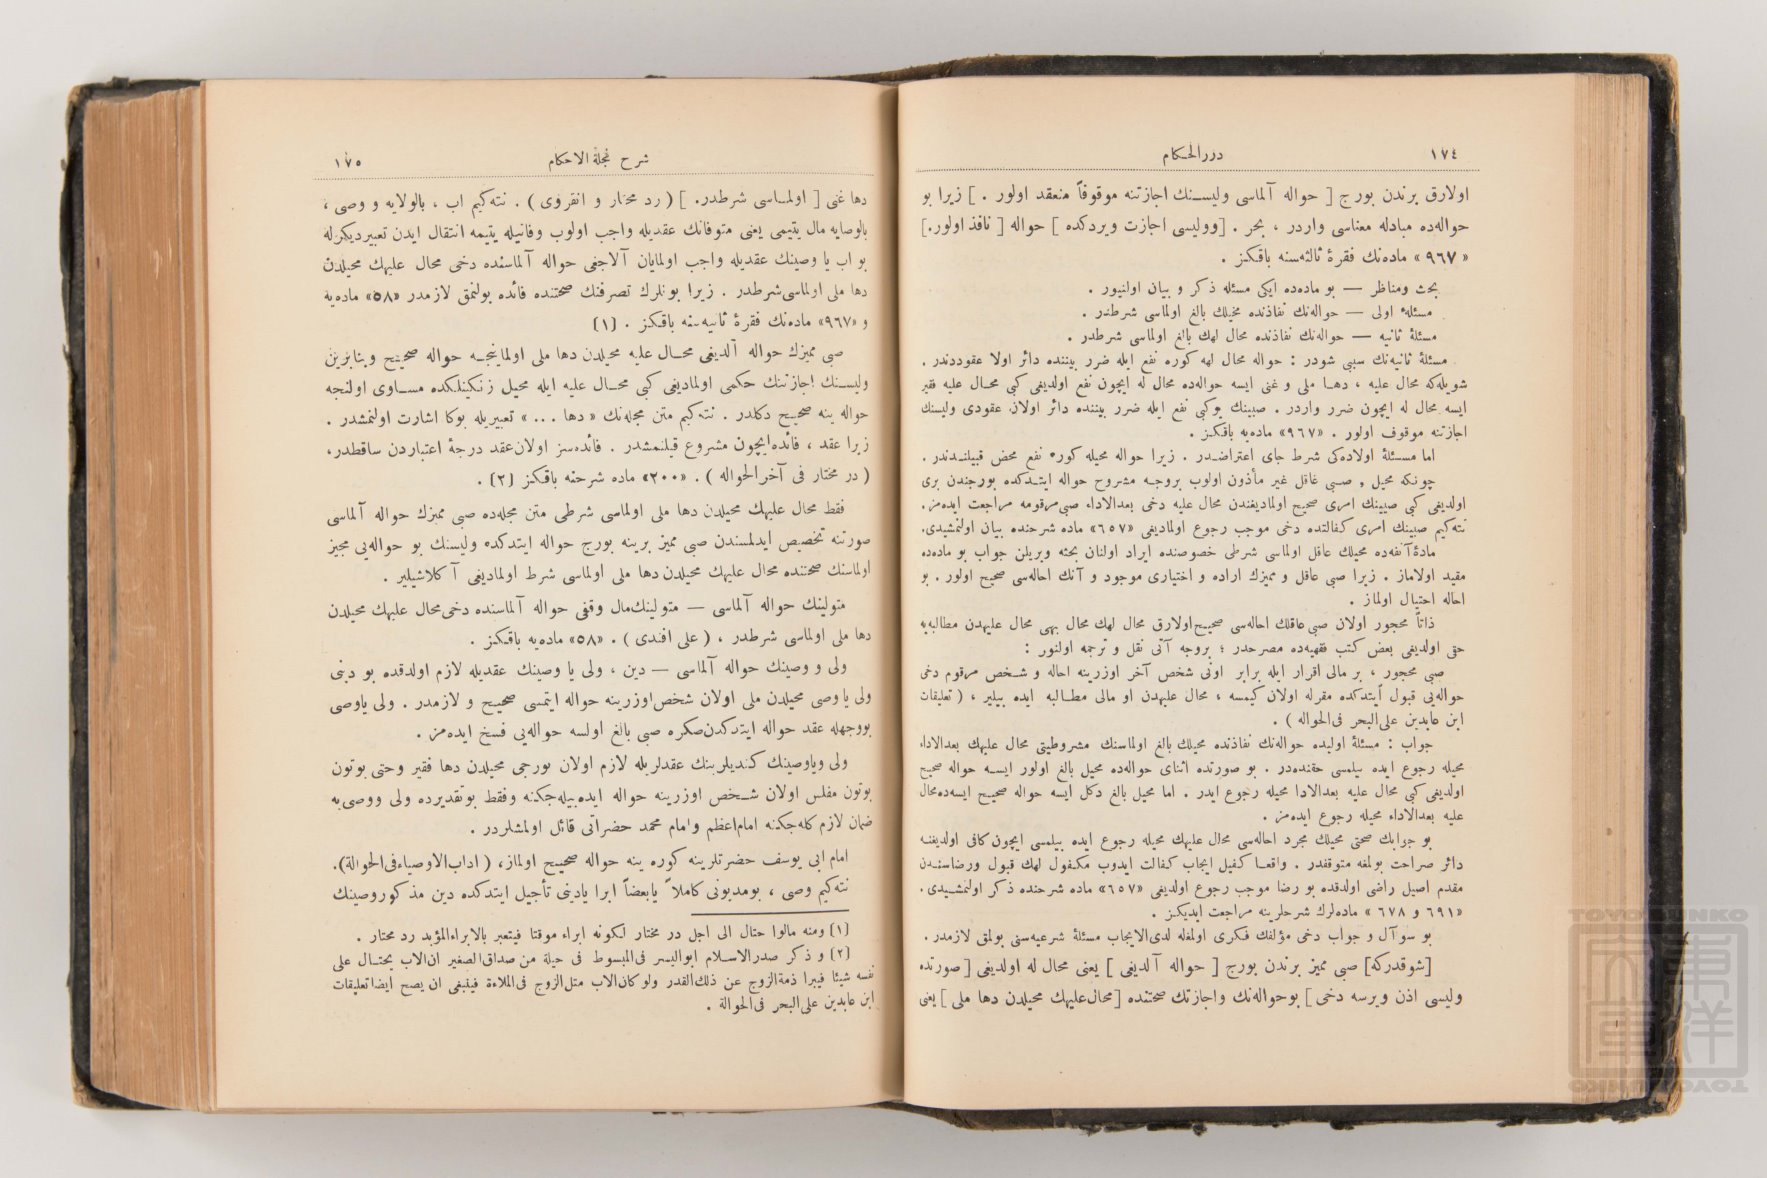 ١٧٤ دررالحكام
اولارق برندن بورج [ حواله آلماسى وليسنك اجازتنه موقوفاً منعقد اولور . ] زيرا بو
حواله‌ده مبادله معناسى واردر ، بحر . [ووليسى اجازت ويردكده ] حواله [ نافذ اولور.]
« ٩٦٧ » ماده‌نك فقرۀ ثالثه‌سنه باقكز .
بحث ومناظر — بو ماده‌ده ايكى مسئله ذكر و بيان اولنيور .
مسئلۀ اولى — حواله‌نك نفاذنده محيلك بالغ اولماسى شرطدر .
مسئلۀ ثانيه — حواله‌نك نفاذنده محال لهك بالغ اولماسى شرطدر .
مسئلۀ ثانيه‌نك سببى شودر : حواله محال لهه كوره نفع ايله ضرر بيننده دائر اولا عقوددندر .
شويله‌كه محال عليه ، دها ملى و غنى ايسه حواله‌ده محال له ايچون نفع اولديغى كبى محال عليه فقير
ايسه محال له ايچون ضرر واردر . صبينك بوكبى نفع ايله ضرر بيننده دائر اولان عقودى وليسنك
اجازتنه موقوف اولور . «٩٦٧» ماده‌يه باقكز .
اما مسئلۀ اولاده‌كى شرط جاى اعتراضدر . زيرا حواله محيله كوره نفع محض قبيلندندر .
چونكه محيل ، صبى غافل غير مأذون اولوب بروجه مشروح حواله ايتدكده بورجندن برى
اولديغى كبى صبينك امرى صحيح اولماديغندن محال عليه دخى بعدالاداء صبى مرقومه مراجعت ايده‌مز.
نته‌كيم صبينك امرى كفالتده دخى موجب رجوع اولماديغى «٦٥٧» ماده شرحنده بيان اولنمشيدى.
مادۀ آنفه‌ده محيلك عاقل اولماسى شرطى خصوصنده ايراد اولنان بحثه ويريلن جواب بو ماده‌ده
مفيد اولاماز . زيرا صبى عاقل و مميزك اراده و اختيارى موجود و آنك احاله‌سى صحيح اولور . بو
احاله احتيال اولماز .
ذاتاً محجور اولان صبى عاقلك احاله‌سى صحيح اولارق محال لهك محال بهى محال عليهدن مطالبه‌يه
حق اولديغى بعض كتب فقهيه‌ده مصرحدر ؛ بروجه آتى نقل و ترجمه اولنور :
صبى محجور ، بر مالى اقرار ايله برابر اونى شخص آخر اوزرينه احاله و شخص مرقوم دخى
حواله‌يى قبول ايتدكده مقرله اولان كيمسه ، محال عليهدن او مالى مطالبه ايده بيلير ، ( تعليقات
ابن عابدين على‌البحر فى‌الحواله ) .
جواب : مسئلۀ اوليده حواله‌نك نفاذنده محيلك بالغ اولماسنك مشروطيتى محال عليهك بعدالاداء
محيله رجوع ايده بيلمسى حقنده‌در . بو صورتده اثناى حواله‌ده محيل بالغ اولور ايسه حواله صحيح
اولديغى كبى محال عليه بعدالادا محيله رجوع ايدر . اما محيل بالغ دكل ايسه حواله صحيح ايسه‌ده محال
عليه بعدالاداء محيله رجوع ايده‌مز .
بو جوابك صحتى محيلك مجرد احاله‌سى محال عليهك محيله رجوع ايده بيلمسى ايچون كافى اولديغنه
دائر صراحت بولمغه متوقفدر . واقعا كفيل ايجاب كفالت ايدوب مكفول لهك قبول ورضاسندن
مقدم اصيل راضى اولدقده بو رضا موجب رجوع اولديغى «٦٥٧» ماده شرحنده ذكر اولنمشيدى .
«٦٩١ و ٦٧٨ » ماده‌لرك شرحلرينه مراجعت ايديكز .
بو سوآل و جواب دخى مؤلفك فكرى اولمغله لدى‌الايجاب مسئلۀ شرعيه‌سنى بولمق لازمدر .
[شوقدركه] صبى مميز برندن بورج [ حواله آلديغى ] يعنى محال له اولديغى [ صورتده
وليسى اذن ويرسه دخى ] بوحواله‌نك واجازتك صحتنده [محال‌عليهك محيلدن دها ملى ] يعنى
شرح مجلة الاحكام ١٧٥
دها غنى [ اولماسى شرطدر. ] ( رد محتار و انقروى ) . نته‌كيم اب ، بالولايه و وصى ،
بالوصايه مال يتيمى يعنى متوفانك عقديله واجب اولوب وفاتيله يتيمه انتقال ايدن تعبيرديكرله
بو اب يا وصينك عقديله واجب اولمايان آلاجغى حواله آلماسنده دخى محال عليهك محيلدن
دها ملى اولماسى شرطدر . زيرا بونلرك تصرفنك صحتنده فائده بولنمق لازمدر «٥٨» ماده‌يه
و «٩٦٧» ماده‌نك فقرۀ ثانيه‌سنه باقكز . (١)
صبى مميزك حواله آلديغى محال عليه محيلدن دها ملى اولماينجه حواله صحيح ويتابرين
وليسنك اجازتنك حكمى اولماديغى كبى محال عليه ايله محيل زنكينلكده مساوى اولنجه
حواله ينه صحيح دكلدر . نته‌كيم متن مجله‌نك « دها ... » تعبيريله بوكا اشارت اولنمشدر .
زيرا عقد ، فائده ايچون مشروع قيلنمشدر . فائده‌سز اولان عقد درجۀ اعتباردن ساقطدر،
( در مختار فى آخرالحواله ) . «٢٠٠» ماده شرحنه باقكز (٢) .
فقط محال عليهك محيلدن دها ملى اولماسى شرطى متن مجله‌ده صبى مميزك حواله آلماسى
صورتنه تخصيص ايدلمسندن صبى مميز برينه بورج حواله ايتدكده وليسنك بو حواله‌يى مجيز
اولماسنك صحتنده محال عليهك محيلدن دها ملى اولماسى شرط اولماديغى آكلاشيلير .
متولينك حواله آلماسى — متولينك‌مال وقفى حواله آلماسنده دخى‌محال عليهك محيلدن
دها ملى اولماسى شرطدر ، ( على افندى ) . «٥٨» ماده‌يه باقكز .
ولى و وصينك حواله آلماسى — دين ، ولى يا وصينك عقديله لازم اولدقده بو دينى
ولى يا وصى محيلدن ملى اولان شخص اوزرينه حواله ايتمسى صحيح و لازمدر . ولى ياوصى
بووجهله عقد حواله ايتدكدن‌صكره صبى بالغ اولسه حواله‌يى فسخ ايده‌مز .
ولى وياوصينك كنديلرينك عقدلريله لازم اولان بورجى محيلدن دها فقير وحتى بوتون
بوتون مفلس اولان شخص اوزرينه حواله ايده‌بيله‌جكنه وفقط بوتقديرده ولى ووصى‌يه
ضمان لازم كله‌جكنه امام‌اعظم وامام محمد حضراتى قائل اولمشلردر .
امام ابى يوسف حضرتلرينه كوره ينه حواله صحيح اولماز، ( اداب‌الاوصياء فى‌الحوالة).
نته‌كيم وصى ، بومديونى كاملاً يابعضاً ابرا يادينى تأجيل ايتدكده دين مذكور وصينك
(١) ومنه مالوا حتال الى اجل در مختار لكونه ابراء موقتا فيعتبر بالابراء المؤبد رد محتار .
(٢) و ذكر صدرالاسلام ابواليسر فى‌المبسوط فى حيلة من صداق‌الصغير ان‌الاب يحتال على
نفسه شيئا فيبرا ذمة‌الزوج عن ذلك‌القدر ولو كان‌الاب مثل‌الزوج فى‌الملاءة فينبغى ان يصح ايضا تعليقات
ابن عابدين على‌البحر فى‌الحوالة .
TOYO BUNKO
東洋文庫
TOYO BUNKO